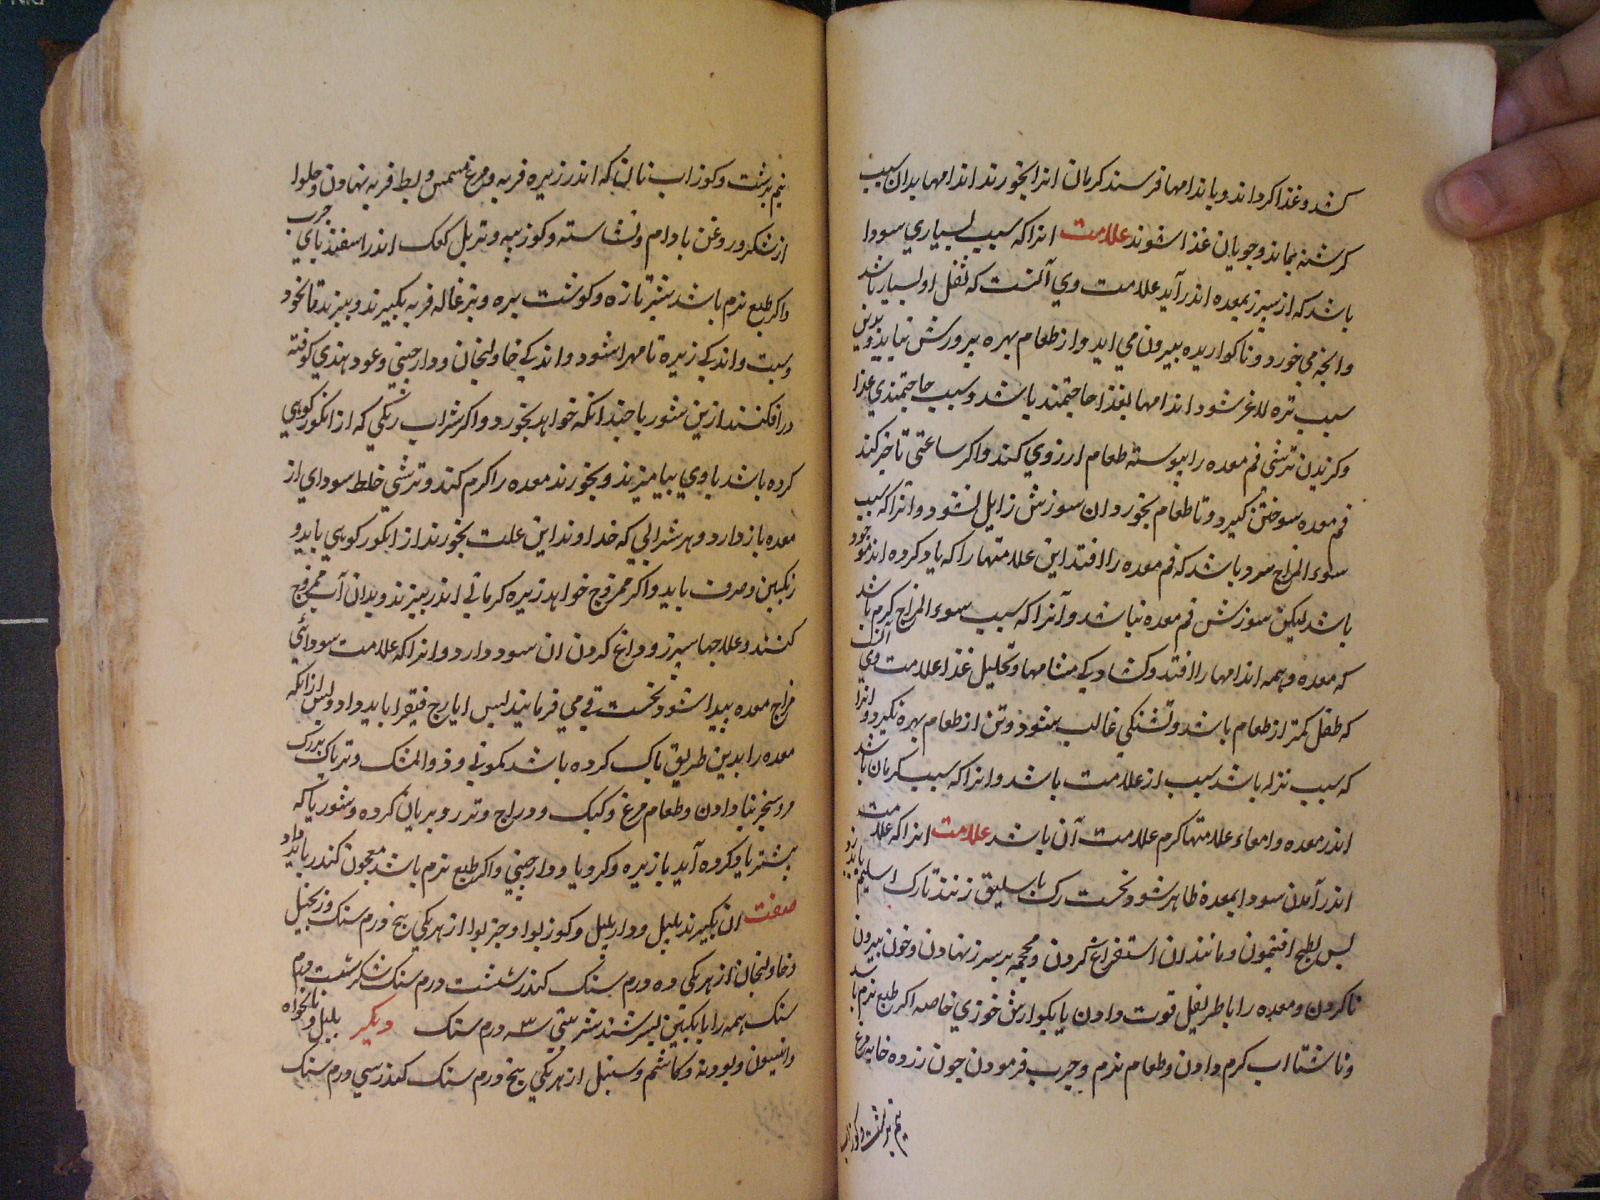 کشد و غذا کرداند و باندامها فرسند کرمان انرا بخورند اندامها بدان سبب
کرسنه بماند و جویان غذا شوند علامت انرا که سبب بسیاري سودا
باشد که از سپرز بمعده اندر آید علامت وي آنست که ثفل او بسیار باشد
وانچه مي خورد و ناکواریده بیرون مي اید و از طعام بهره پرورش نیابد و بدین
سبب تره لاغر شود اندامها بغذا حاجتمند باشد و سبب حاجتمندي غذا
و کزیدن ترشي فم معده را پیوسته طعام ارزوي کند و اکر ساعتي تاخیر کند
فم معده سوختن کیرد و تا طعام بخورد ان سوزش زایل نشود و انرا که سبب
سوء المزاج سرد باشد که فم معده را افتد این علامتها را که یاد کرده اند موجود
باشد لیکن سوزش فم معده نباشد و آنرا که سبب سوء المزاج کرم باشد
که معده و همه اندامها را افتد و کشادکي مسامها و تحلیل غذا علامت وي آنست
که ثفل کمتر از طعام باشد و تشنکي غالب بشود و تن از طعام بهره نکیرد و انرا
که سبب نزله باشد سبب از علامت باشد و انرا که سبب کرمان باشد
اندر معده و امعاء علامتها کرم علامت آن باشد علامت انرا که علامت
اندر آمدن سودا بمعده ظاهر شود نخست رک باسلیق زنند تا رک اسلیم باید زد
پس بطبخ افتیمون و مانند ان استفراغ کردن و محجمه بر سپرز نهادن و خون بیرون
ناکردن و معده را باطریفل قوت دادن یا بکوارش خوزي خاصه اکر طبع نرم باشد
و ناشتا اب کرم دادن و طعام نرم و چرب فرمودن چون زرده خایه مرغ
نیم برشت و کوزاب
نیم برشت و کوزاب نان که اندر زیره فربه و مرغ مسمن و بط فربه نهادن و حلوا
از شکر و روغن بادام و نشاسته و کوز سپه و تریل کعک اندر اسفیذباي چرب
و اکر طبع نرم باشد شیر تازه و کوشت بره و بزغاله فربه بکیرند و بپزند تا نخود
و شبت و اندکي زیره تا مهرا شود و اندکي خاولنجان و دارچیني و عود هندي کوفته
در افکنند ازین شوربا چندانکه خواهد بخورد و اکر شراب رنکي که از انکور کوهي
کرده باشد با وي بیامیزند و بخورند معده را کرم کند و ترشي خلط سوداي از
معده بازدارد و هر شرابي که خداوند این علت بخورند از انکور کوهي باید و
رنکین و صرف باید و اکر ممزوج خواهد زیره کرماني اندر بپزند و بدان آب ممزوج
کنند و علاجها سپرز و داغ کردن ان سود دارد و انرا که علامت سودائي
مزاج معده پیدا شود نخست قي مي فرمایند پس ایارج فیقرا باید داد و پس ازانکه
معده را بدین طریق پاک کرده باشد کموني و دوالمشک و تریاک بزرک
و سجزینا دادن و طعام مرغ و کبک و دراج و تدرو بریان کرده و شوربا که
پیشتر یاد کرده آید با زیره و کرویا و دارچیني و اکر طبع نرم باشد معجون کندر باید داد
صفت ان بکیرند پلپل و دارپلپل و کوزبوا و جزبوا از هر یکي پنج درم سنک و زنجبیل
و خاولنجان از هر یکي ده درم سنک کندر شست درم سنک شکر شصت درم
سنک همه را بانکبین بسرشند شربتي سه درم سنک دیکر پلپل و نانخواه
و انیسون و پودنه و کاشم و سنبل از هر یکي پنج درم سنک کندر سي درم سنک